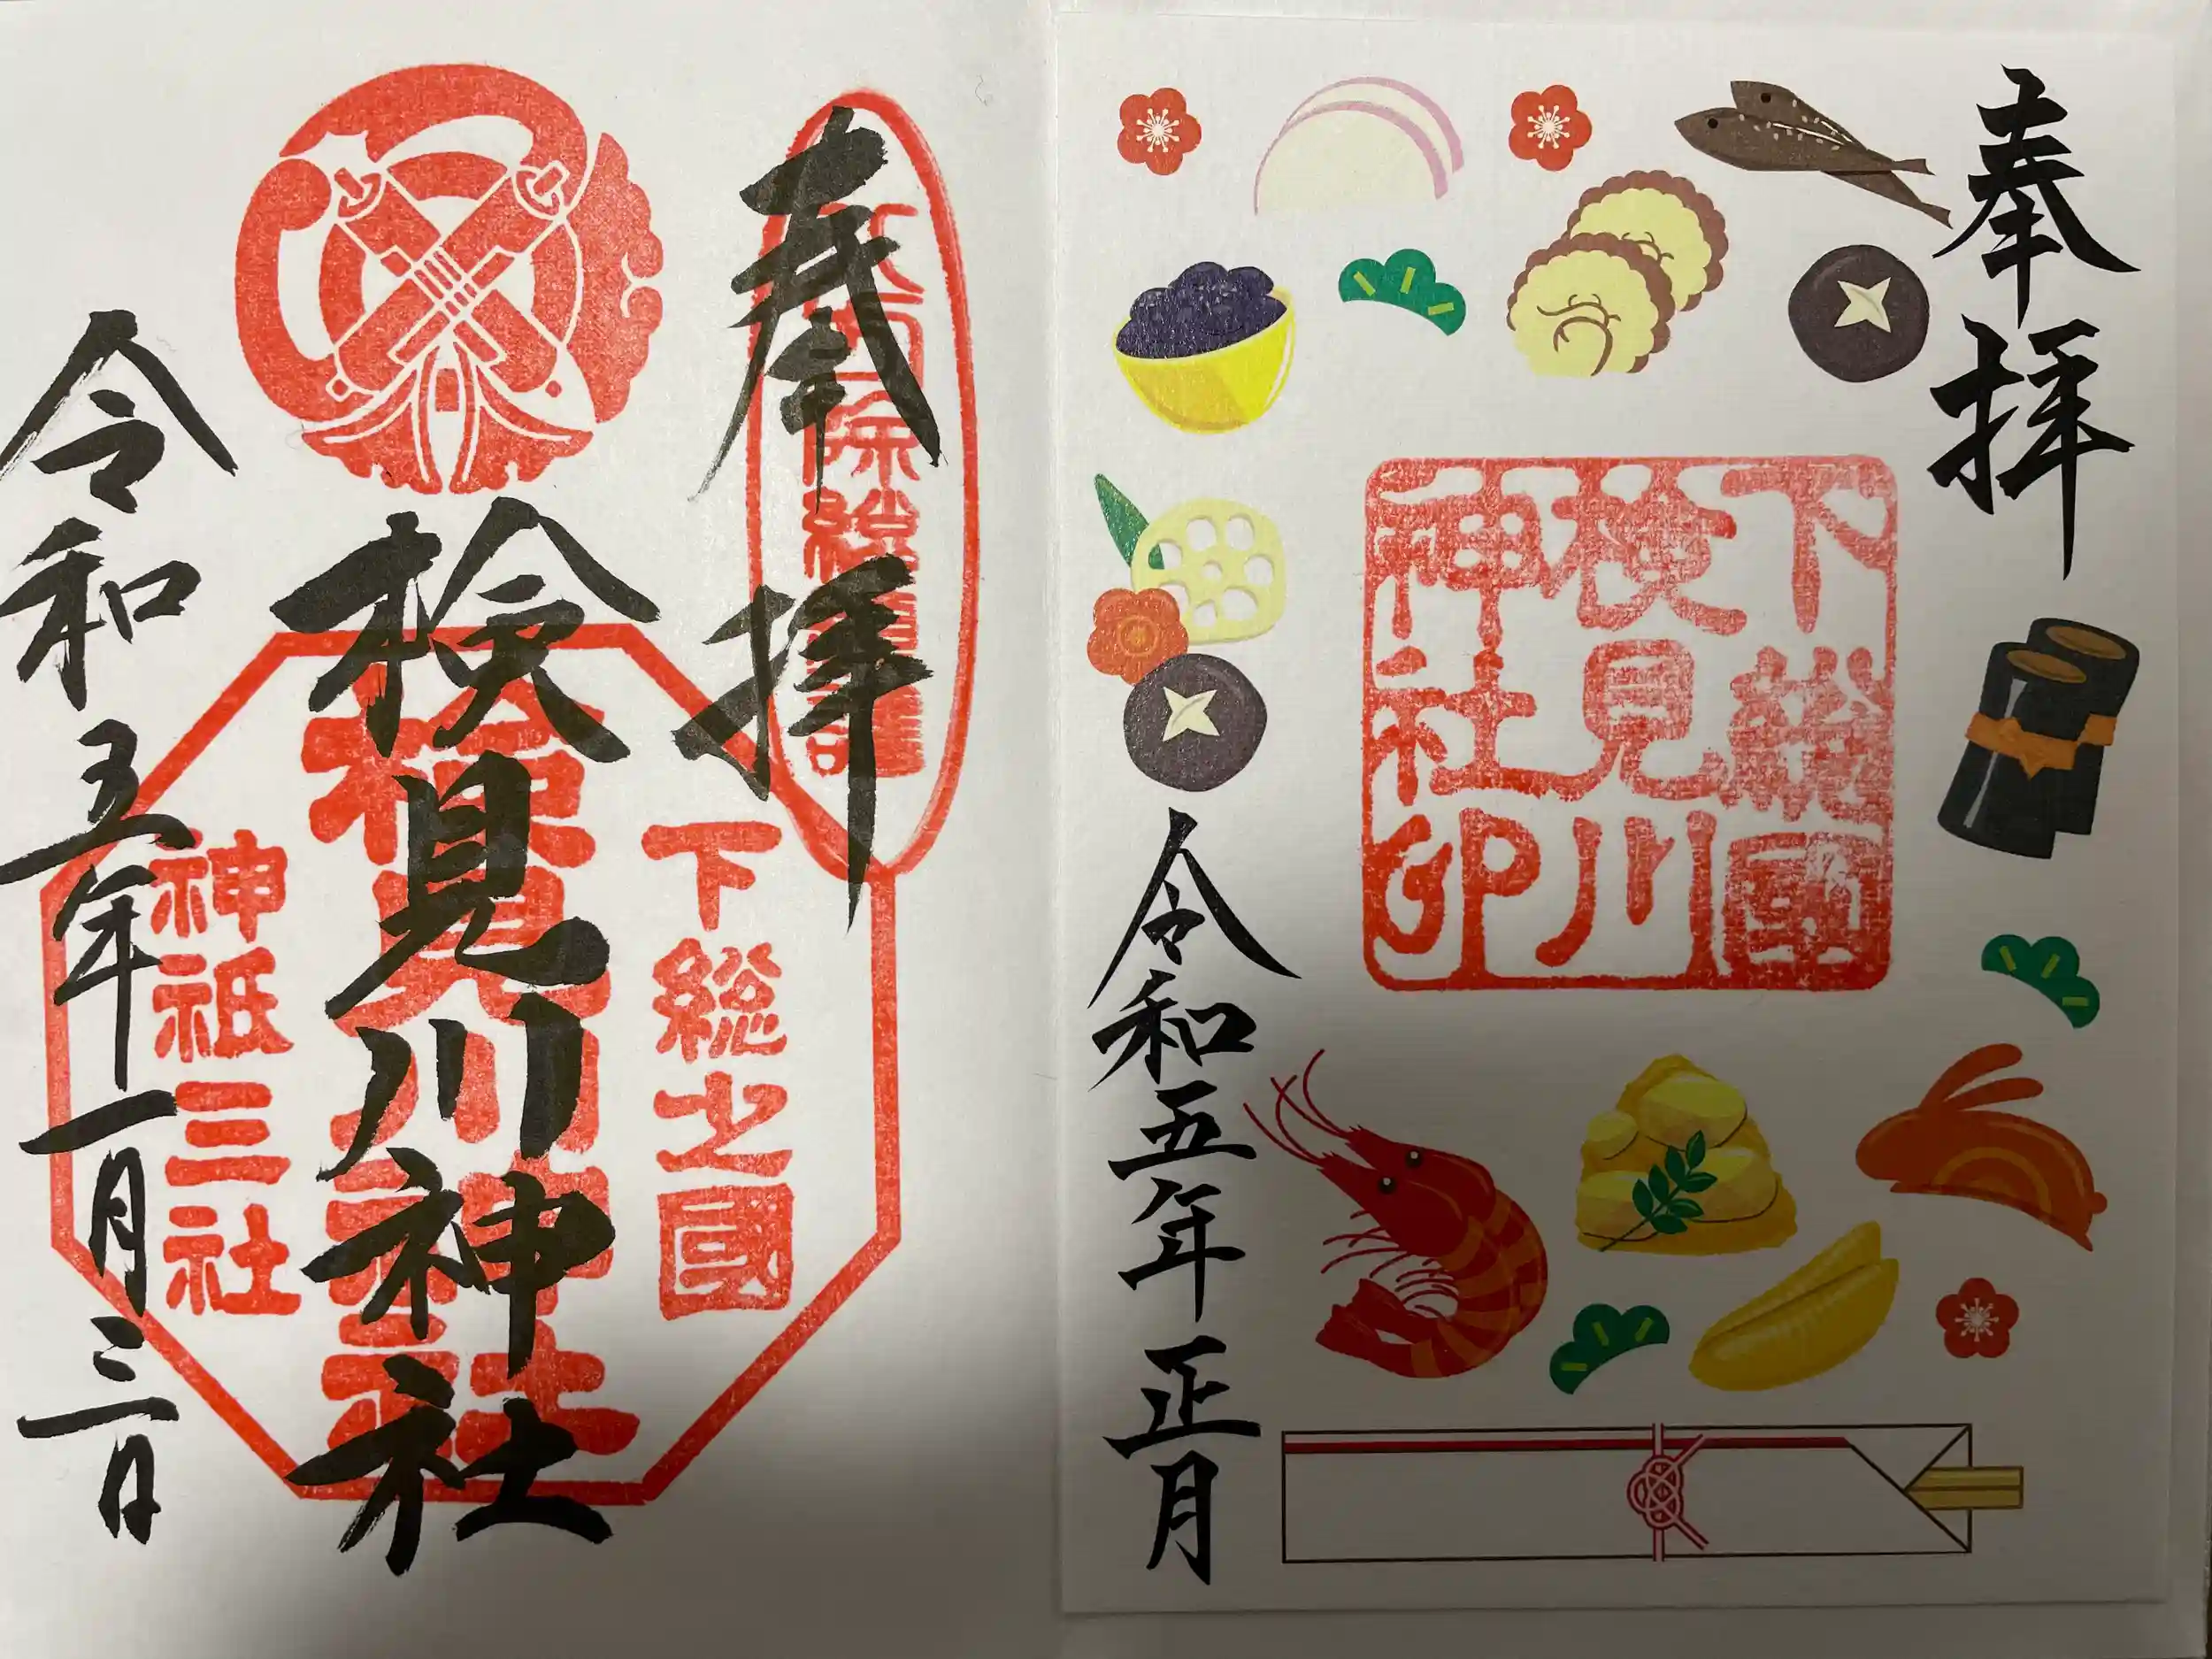 奉拝
下総國
検見川
神社印
令和五年正月
奉拝
下総之國
検見川神社
神祇三社
令和五年一月三日